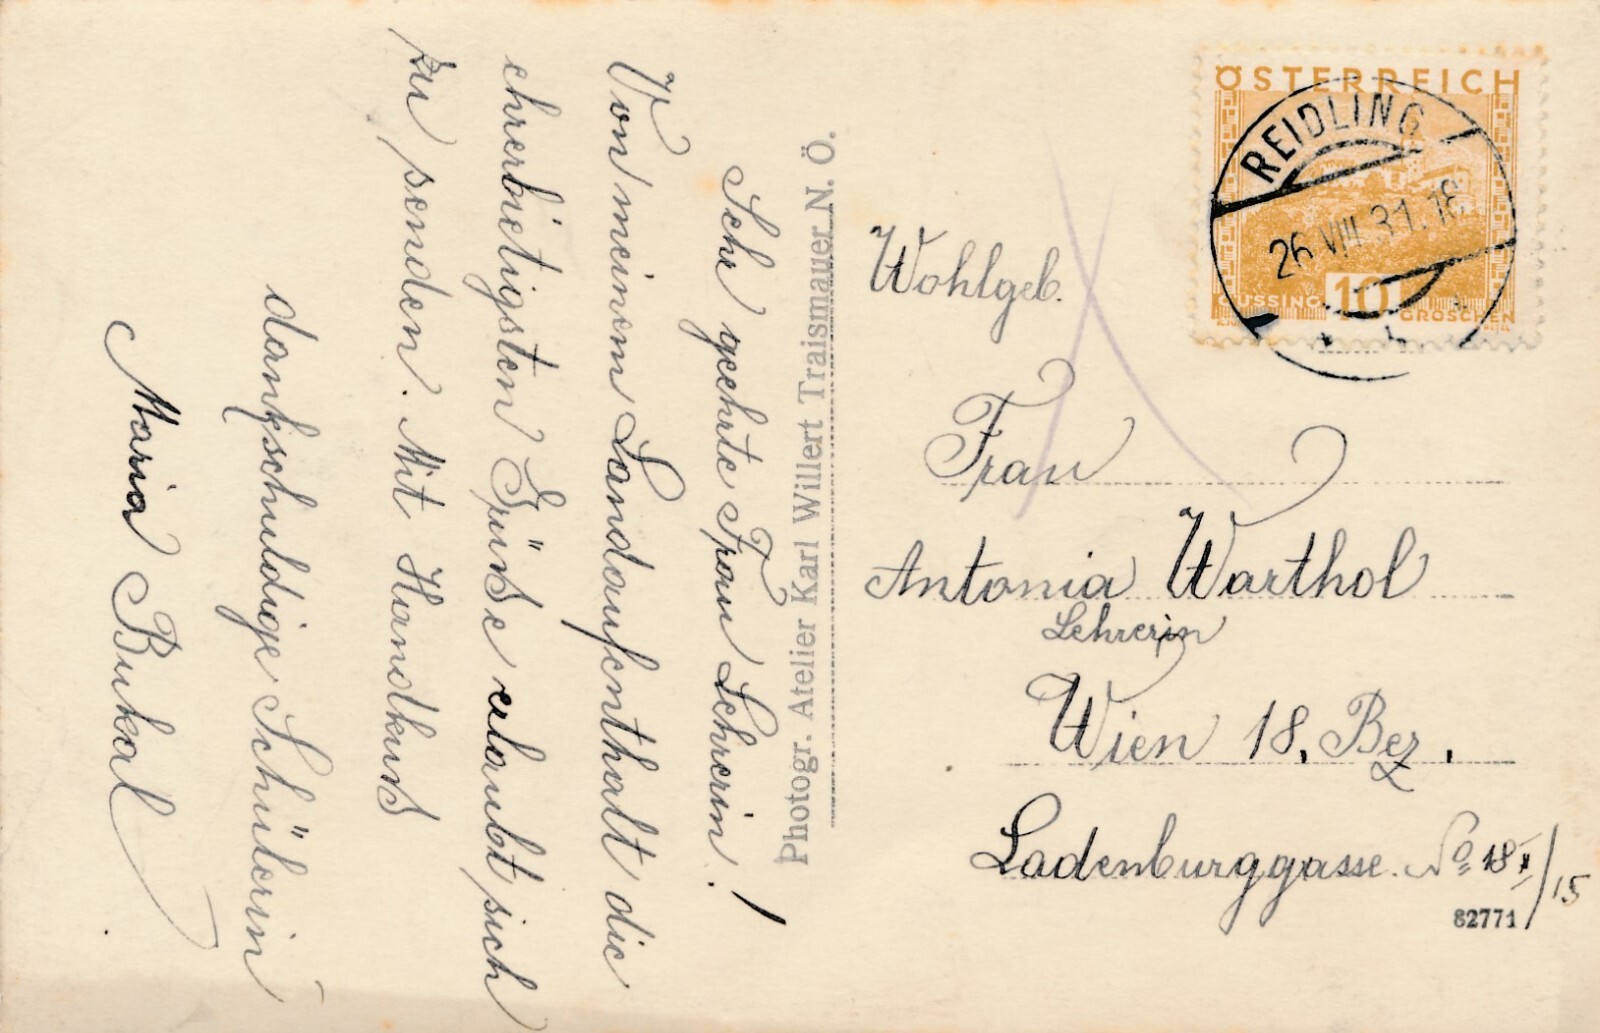 Sehr geehrte Frau Lehrerin!
Von meinem Landaufenthalt die
ehrerbietigsten Grüsse erlaubt sich
zu senden. Mit Handkuss
dankschuldige Schülerin
Maria Bukal
Photogr. Atelier Karl Willert Traismauer N. Ö.
ÖSTERREICH
GÜSSING 10 GROSCHEN
REIDLING
26 VIII 31. 18
Wohlgeb.
Frau
Antonia Warthol
Lehrerin
Wien 18. Bez.
Ladenburggasse. No 18 I/15
82771